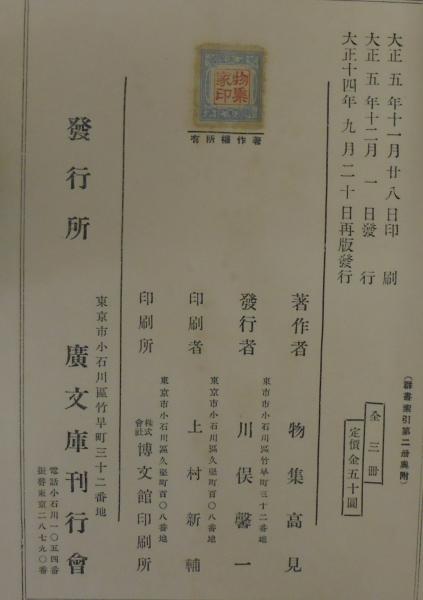 大正五年十一月廿八日印刷
大正五年十二月一日發行
大正十四年九月二十日再版發行
(群書索引第二册奧附)
全三册
定價金五十圓
物集家印
著作權所有
著作者 物集高見
東京市小石川區竹早町三十二番地
發行者 川俣馨一
東京市小石川區久堅町百〇八番地
印刷者 上村新輔
東京市小石川區久堅町百〇八番地
印刷所 株式會社 博文館印刷所
東京市小石川區竹早町三十二番地
發行所 廣文庫刊行會
電話小石川一〇五四番
振替東京二八七九〇番